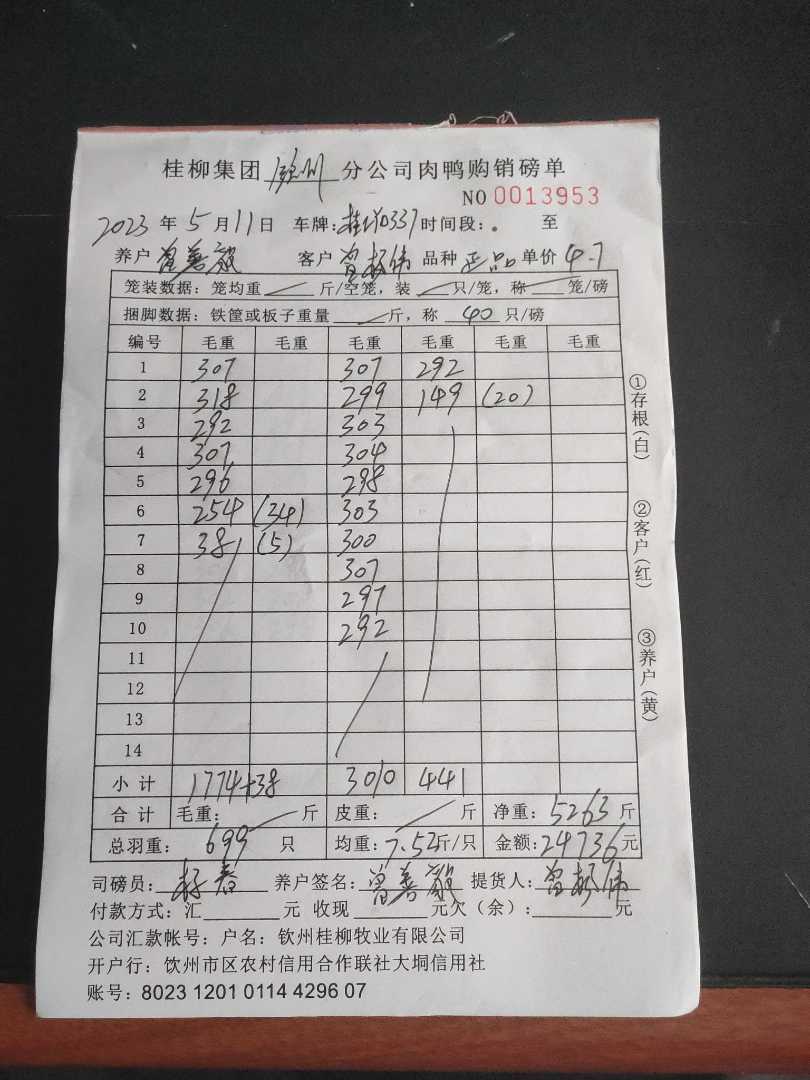 桂柳集团 钦州 分公司肉鸭购销磅单
NO 0013953
2023 年 5 月 11 日 车牌: 0337 时间段: 至
养户 曾善 客户 曾 伟 品种 正品 单价 4.7
笼装数据: 笼均重 斤/空笼, 装 只/笼, 称 笼/磅
捆脚数据: 铁筐或板子重量 斤, 称 40 只/磅
编号 毛重 毛重 毛重 毛重 毛重 毛重
1 307 307 292
2 318 299 149 (20)
3 292 303
4 307 304
5 296 298
6 254 (34) 303
7 38 (5) 300
8 307
9 297
10 292
11
12
13
14
小计 1774+38 3010 441
合计 毛重: 斤 皮重: 斤 净重: 5263 斤
总羽重: 699 只 均重: 7.52 斤/只 金额: 24736 元
司磅员: 养户签名: 曾善 提货人: 曾 伟
付款方式: 汇 元 收现 元欠(余): 元
公司汇款帐号: 户名: 钦州桂柳牧业有限公司
开户行: 饮州市区农村信用合作联社大垌信用社
账号: 8023 1201 0114 4296 07
①存根(白)
②客户(红)
③养户(黄)